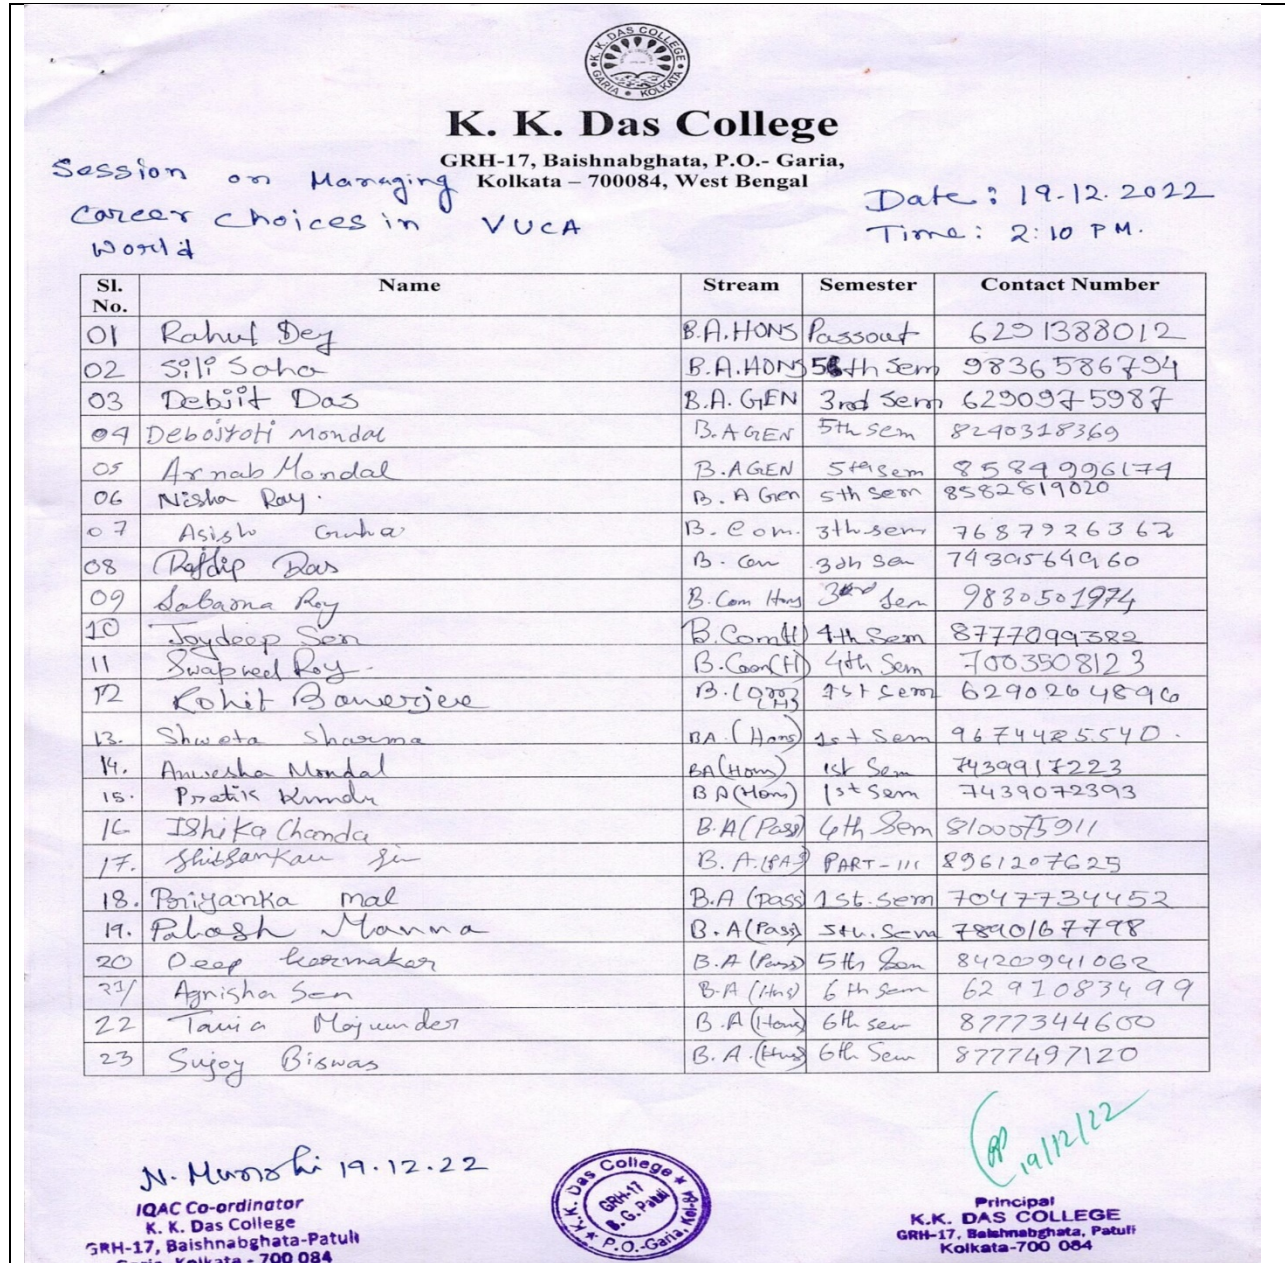 K. K. DAS COLLEGE
GARIA • KOLKATA
K. K. Das College
GRH-17, Baishnabghata, P.O.- Garia,
Kolkata – 700084, West Bengal
Session on Managing
Career Choices in VUCA
World
Date: 19.12.2022
Time: 2:10 PM.
Sl. No. Name Stream Semester Contact Number
01 Rahul Dey B.A.HONS Passout 6291388012
02 Sili Saha B.A.HONS 5th Sem 9836586794
03 Debjit Das B.A. GEN 3rd Sem 6290975987
04 Debojyoti Mondal B.A GEN 5th sem 8240318369
05 Arnab Mondal B.A GEN 5th sem 8584996174
06 Nisha Ray. B. A Gen 5th Sem 8582819020
07 Asish Guha B. Com. 3th sem 7687926362
08 Rajdip Das B. Com 3th Sem 7439564960
09 Sabarna Roy B.Com Hons 3rd Sem 9830501974
10 Joydeep Sen B.Com(H) 4th Sem 8777099382
11 Swapneel Roy. B.Com(H) 4th Sem 7003508123
12 Rohit Banerjee B.Com (H) 1st Sem 6290264896
13. Shweta Sharma BA (Hons) 1st Sem 9674425540.
14. Anwesha Mondal BA(Hons) 1st Sem 7439917223
15. Pratik Kundu BA(Hons) 1st Sem 7439072393
16 Ishika Chanda B.A(Pass) 4th Sem 8100075911
17. B.A.(PAS) PART-III 8961207625
18. Priyanka mal B.A (pass) 1st. sem 7047734452
19. Palash Manna B.A(Pass) 5th. Sem 7890167798
20 Deep karmakar B.A (Pass) 5th Sem 8420941062
21/ Agnisha Sen B.A (Hns) 6th Sem 6291083499
22 Tania Majumder B.A (Hons) 6th sem 8777344600
23 Sujoy Biswas B.A.(Hns) 6th Sem 8777497120
N. Munshi 19.12.22
IQAC Co-ordinator
K. K. Das College
GRH-17, Baishnabghata-Patuli
Garia, Kolkata - 700 084
K. K. Das College
GRH-17
B. G. Patuli
P.O.-Garia, Kol-84
19/12/22
Principal
K.K. DAS COLLEGE
GRH-17, Baishnabghata, Patuli
Kolkata-700 084